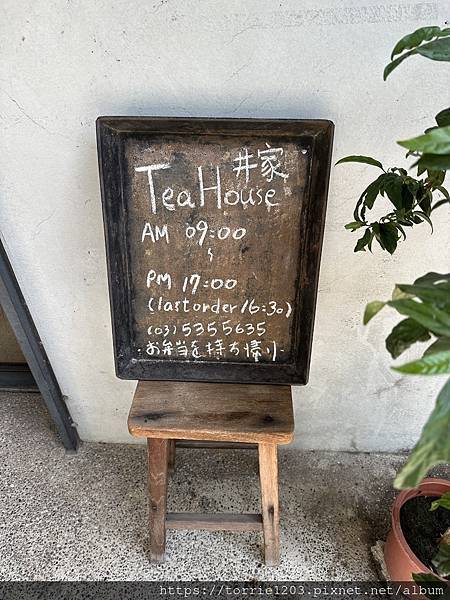 井家
Tea House
AM 09:00
~
PM 17:00
(last order 16:30)
(03) 5355635
お弁当を持ち帰り
https://torrie1203.pixnet.net/album